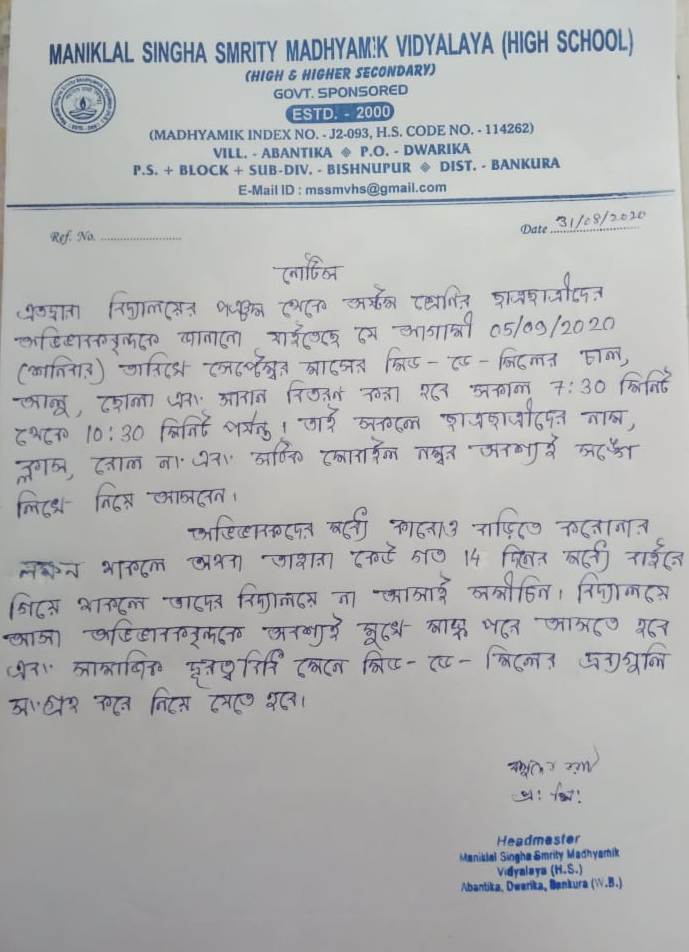 MANIKLAL SINGHA SMRITY MADHYAMIK VIDYALAYA (HIGH SCHOOL)
(HIGH & HIGHER SECONDARY)
GOVT. SPONSORED
ESTD. - 2000
(MADHYAMIK INDEX NO. - J2-093, H.S. CODE NO. - 114262)
VILL. - ABANTIKA ❖ P.O. - DWARIKA
P.S. + BLOCK + SUB-DIV. - BISHNUPUR ❖ DIST. - BANKURA
E-Mail ID : mssmvhs@gmail.com
Ref. No. ......................
Date 31/08/2020
নোটিস
এতদ্বারা বিদ্যালয়ের পঞ্চম থেকে অষ্টম শ্রেনির ছাত্রছাত্রীদের
অভিভাবকবৃন্দকে জানানো যাইতেছে যে আগামী 05/09/2020
(শনিবার) তারিখে সেপ্টেম্বর মাসের মিড - ডে - মিলের চাল,
আলু, ছোলা এবং সাবান বিতরন করা হবে সকাল 7:30 মিনিট
থেকে 10:30 মিনিট পর্যন্ত। তাই সকলে ছাত্রছাত্রীদের নাম,
ক্লাস, রোল নং এবং সঠিক মোবাইল নম্বর অবশ্যই সঙ্গে
লিখে নিয়ে আসবেন।
অভিভাবকদের মধ্যে কারোও বাড়িতে করোনার
লক্ষন থাকলে অথবা তাহারা কেউ গত 14 দিনের মধ্যে বাইরে
গিয়ে থাকলে তাদের বিদ্যালয়ে না আসাই সমীচিন। বিদ্যালয়ে
আসা অভিভাবকবৃন্দকে অবশ্যই মুখে মাস্ক পরে আসতে হবে
এবং সামাজিক দূরত্ববিধি মেনে মিড - ডে - মিলের দ্রব্যগুলি
সংগ্রহ করে নিয়ে যেতে হবে।
প্রঃ শিঃ
Headmaster
Maniklal Singha Smrity Madhyamik
Vidyalaya (H.S.)
Abantika, Dwarika, Bankura (W.B.)